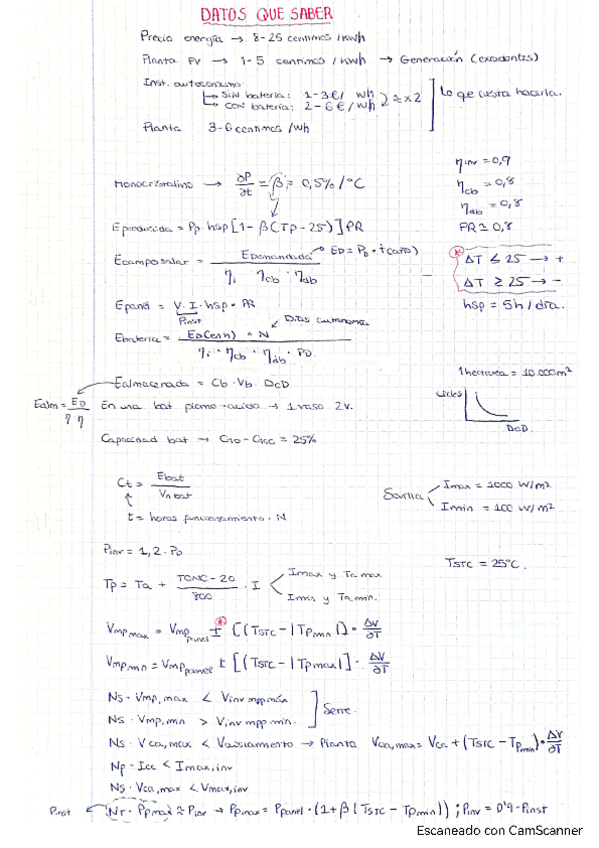 DATOS QUE SABER
Precio energía → 8-25 centimos / kWh
Planta FV → 1-5 centimos / kWh → Generación (excedentes)
Inst. autoconsumo
↳ Sin bateria: 1-3 € / Wh
↳ con bateria: 2-6 € / Wh
≈ x2
Lo que cuesta hacerla.
Planta 3-6 centimos / Wh
Monocristalino → ∂P/∂t = β = 0,5% / °C
η inv = 0,9
η cb = 0,8
η db = 0,8
PR ≈ 0,8
Eproducida = Pp · hsp [1 - β(Tp - 25)] PR
Ecampo solar = Edemandada / ηi · ηcb · ηdb → ED = PD · t (año)
ΔT ≤ 25 → +
ΔT ≥ 25 → -
hsp = 5h / día.
Epanel = V · I · hsp · PR
Pinst
Días autonomía
Ebateria = ED(een) · N / ηi · ηcb · ηdb · PD
Ealmacenada = Cb · Vb · DcD
Ealm = ED / η · η
En una bat plomo-acido → 1 vaso 2V.
1 hectarea = 10 000 m²
ciclos
DcD.
Capacidad bat → C10 - C100 = 25%
Ct = Ebat / Vn bat
t = horas funcionamiento · N
Sevilla
Imax = 1000 W/m²
Imin = 100 W/m²
Pinv = 1,2 · PD
TSTC = 25°C.
Tp = Ta + TONC - 20 / 800 · I
Imax y Ta max
Imin y Ta min.
Vmp max = Vmp panel ± [(TSTC - |Tp min|] · ΔV/∂T
Vmp min = Vmp panel ± [(TSTC - |Tp max|] · ΔV/∂T
Ns · Vmp, max < Vinv mpp máx
Ns · Vmp, min > Vinv mpp min.
Serie.
Ns · Vca, max < Vaislamiento → Planta Vca, max = Vca + (TSTC - Tp min) · ΔV/∂T
Np · Icc < Imax, inv
Ns · Vca, max < Vmax, inv
Pinst ← NT · Pp max ≈ Pinv → Pp max = Ppanel · (1 + β (TSTC - Tp min)) ; Pinv = 0'9 · Pinst
Escaneado con CamScanner